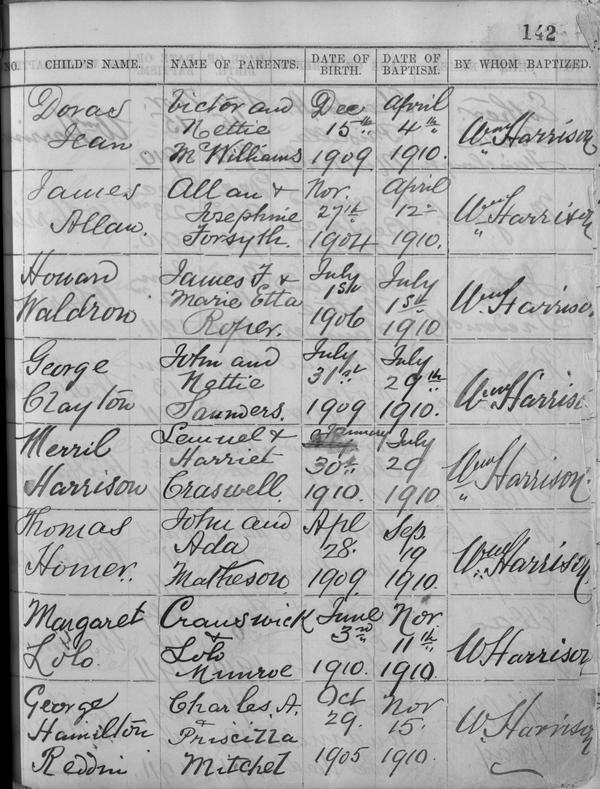 142
NO. CHILD'S NAME. NAME OF PARENTS. DATE OF BIRTH. DATE OF BAPTISM. BY WHOM BAPTIZED.
Doras Victor and Dec April
Jean Nettie 15th 4th Wm Harrison
McWilliams 1909 1910.
James Allan & Nov. April
Allan. Josephine 27th 12 Wm Harrison
Forsyth. 1904 1910.
Howard James F & July July
Waldron Marie Etta 1st 1st Wm Harrison
Roper. 1906 1910
George John and July July
Nettie 31st 29th
Clayton Saunders. 1909 1910. Wm Harriso
Merril Lemuel & January July
Harriet 30th 29 Wm Harrison.
Harrison Craswell. 1910. 1910
Thomas John and Apl Sep
Ada 28. 19 Wm Harrison
Homer. Matheson 1909. 1910.
Margaret Cranswick June Nov.
& 3rd 11th
Lolo. Lolo W Harrison
Munroe 1910. 1910
George Charles. A. Oct Nov
Hamilton & Priscilla 29. 15. W. Harrison
Reddin Mitchel 1905 1910.